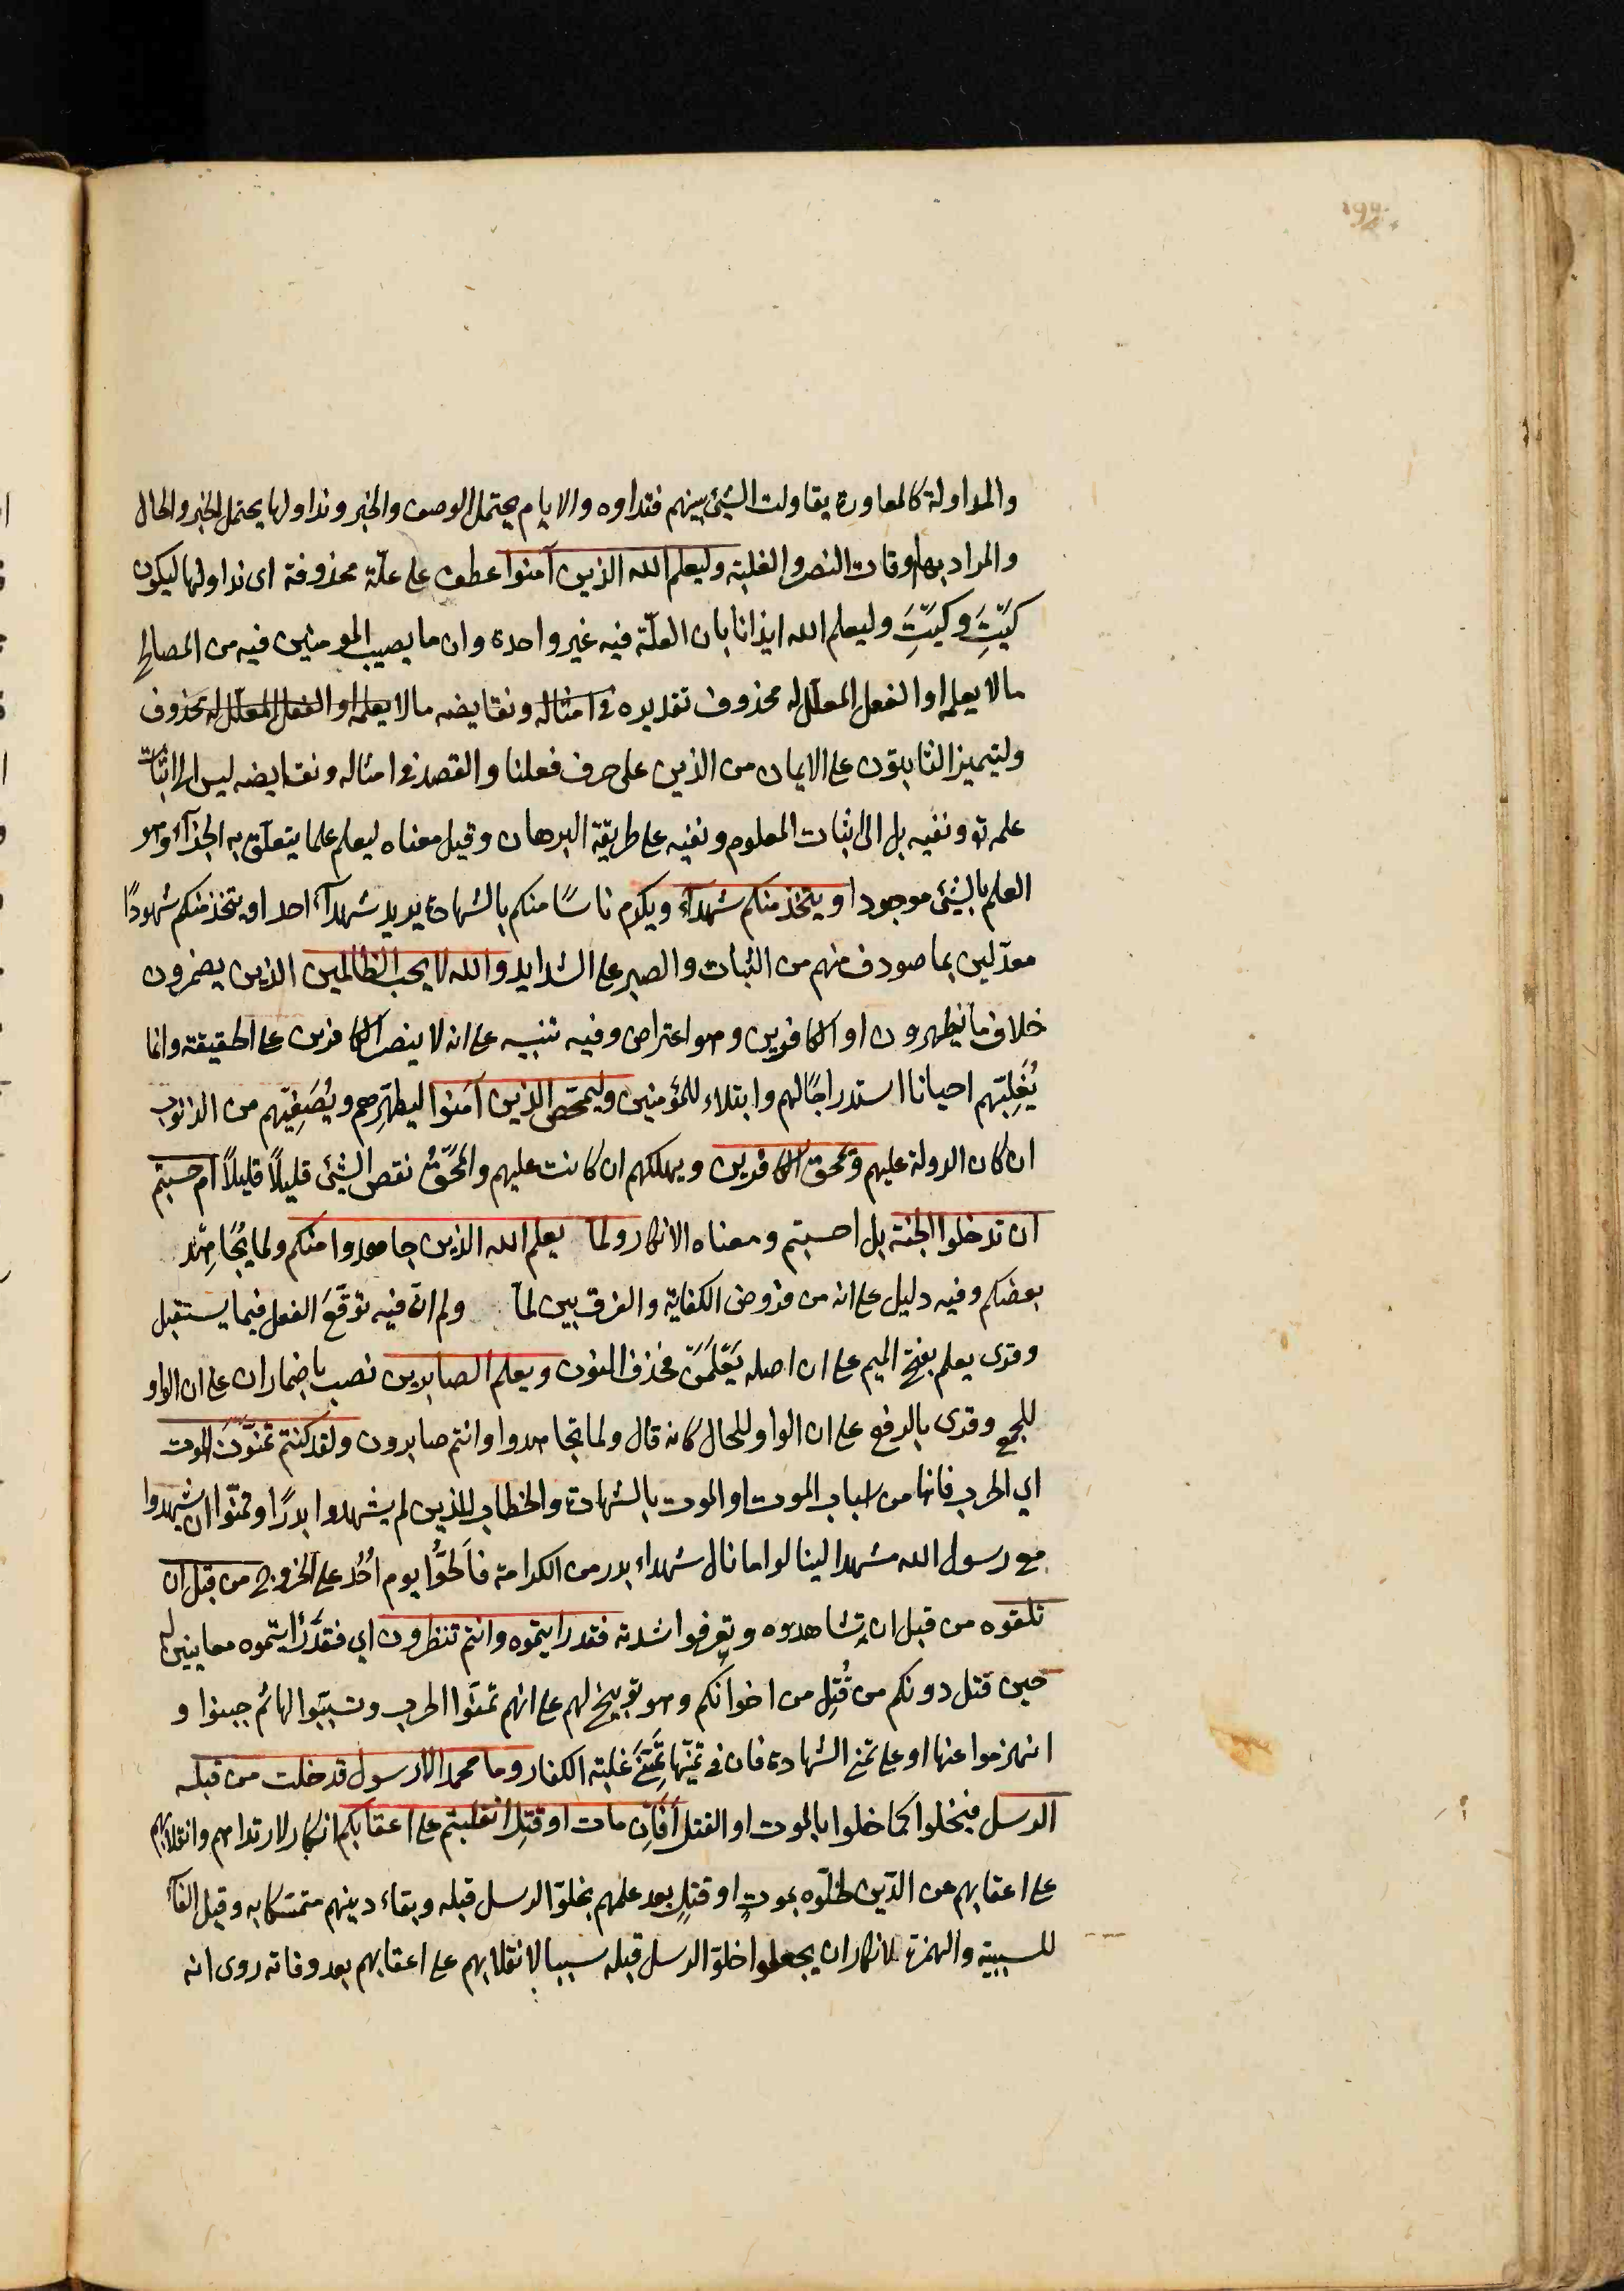 والمداولة كالمعاورة يقاولت الشيء بينهم فتداوه والايام يحتمل الوصف والخبر ونداولها يحتمل الخبر والحال
والمراد بها اوقات النصر والغلبة وليعلم الله الذين آمنوا عطف على علّة محذوفة اى نداولها ليكون
كَيْتَ وكَيْتَ وليعلم الله ايذانا بان العلّة فيه غير واحدة وان ما يصيب المومنين فيه من المصالح
مالا يعلم او الفعل المعلّل له محذوف تقديره فى امثاله ونقايضه مالا يعلم او الفعل المعلّل له محذوف
وليتميز الثابتون على الايمان من الذين على حرف فعلنا والقصد فى امثاله ونقايضه ليس الى اثبات
علمه تع ونفيه بل الى اثبات المعلوم ونفيه على طريقة البرهان وقيل معناه ليعلم علما يتعلّق به الجزآء وهو
العلم بالشيء موجودا ويتخذ منكم شهدآء ويكرم ناسًا منكم بالشهادة يريد شهدآء احد او يتخذ منكم شهودًا
معدّلين بما صودف منهم من الثبات والصبر على الشدايد والله لا يحب الظالمين الذين يضمرون
خلاف ما يظهرون او الكافرين وهو اعتراض وفيه تنبيه على انه لا ينصر الكافرين على الحقيقة وانما
يُغَلِّبُهم احيانا استدراجًا لهم وابتلاء للمؤمنين وليمحّص الذين آمنوا ليطهّرهم ويُصَفّيهم من الذنوب
ان كان الدولة عليهم ويمحق الكافرين ويهلكهم ان كانت عليهم والمَحْقُ نقص الشيء قليلًا قليلًا ام حسبتم
ان تدخلوا الجنة بل احسبتم ومعناه الانكار ولما يعلم الله الذين جاهدوا منكم ولما يُجاهِد
بعضكم وفيه دليل على انه من فروض الكفاية والفرق بين لما ولم ان فيه توقّع الفعل فيما يستقبل
وقرى يعلم بفتح الميم على ان اصله يَعْلَمَنْ فحذف النون ويعلم الصابرين نصب باضمار ان على ان الواو
للجمع وقرى بالرفع على ان الواو للحال كانه قال ولما تجاهدوا وانتم صابرون ولقد كنتم تمنّون الموت
اي الحرب فانها من اسباب الموت او الموت بالشهادة والخطاب للذين لم يشهدوا بدرًا وتمنّوا ان يشهدوا
مع رسول الله مشهدا لينالوا ما نال شهداء بدر من الكرامة فاَلَحُّوا يوم اُحُد على الخروج من قبل ان
تلقوه من قبل ان تشاهدوه وتعرفوا شدته فقد رايتموه وانتم تنظرون اي فقد رأيتموه معاينين له
حين قتل دونكم من قُتِل من اخوانكم وهو توبيخ لهم على انهم تمنّوا الحرب وتسبّبوا لها ثم جبنوا و
انهزموا عنها او على تمنى الشهادة فان فى تمنّيها تمنّى غلبة الكفار وما محمد الا رسول قد خلت من قبله
الرسل فيخلوا كما خلوا بالموت او القتل أفَاِن مات او قتل انقلبتم على اعقابكم انكار لارتدادهم وانقلابهم
على اعقابهم عن الدّين لخلّوه بموتٍ او قتلٍ بعد علمهم بخلوّ الرسل قبله وبقاء دينهم متمسّكا به وقيل الفآء
للسببية والهمزة لانكار ان يجعلوا خلوّ الرسل قبله سببا لانقلابهم على اعقابهم بعد وفاته روى انه